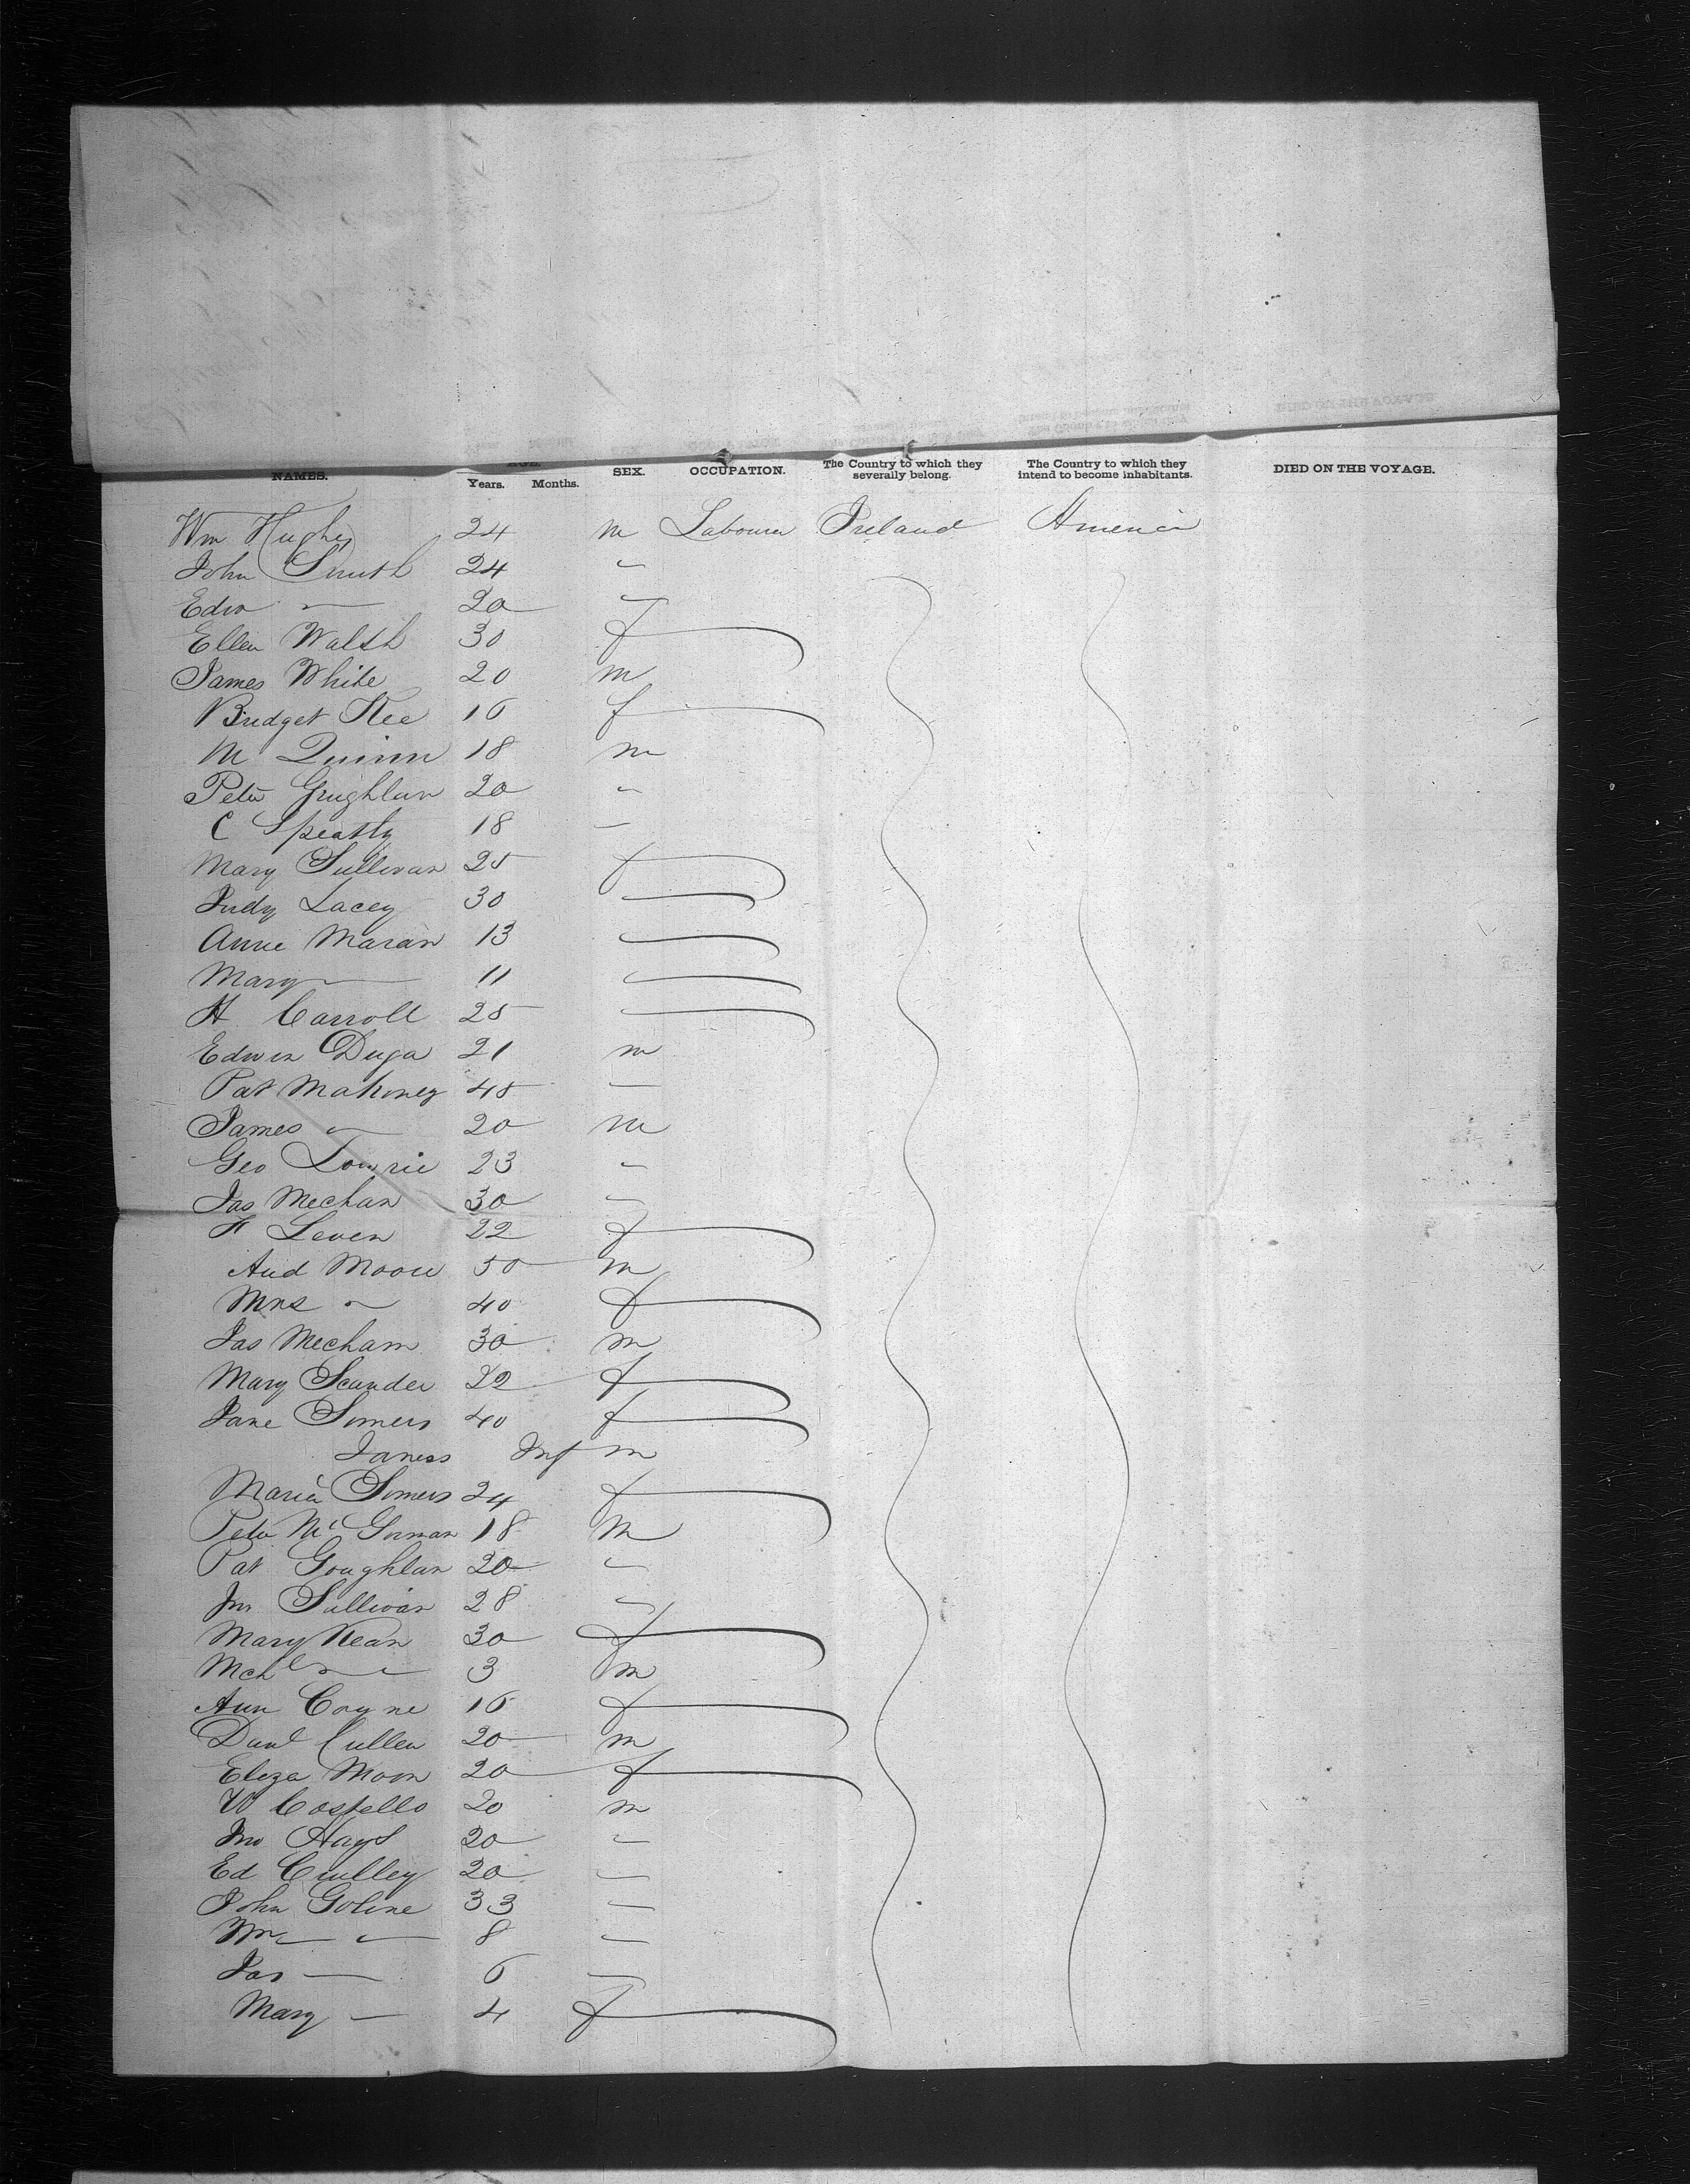 NAMES. AGE. Years. Months. SEX. OCCUPATION. The Country to which they severally belong. The Country to which they intend to become inhabitants. DIED ON THE VOYAGE.
Wm Hughes 24 m Labourer Ireland America
John Smith 24 "
Edw — 20 "
Ellen Walsh 30 f
James White 20 m
Bridget Kee 16 f
M Quinn 18 m
Peter 20 "
C 18 —
Mary Sullivan 25 f
Judy Lacey 30 —
Anne Maran 13 —
Mary — 11 —
H Carroll 25 —
Edwin Duga 21 m
Pat Mahoney 45 —
James — 20 m
Geo Lowrie 23 "
Jas Mechan 30 "
F Leven 22 f
And Moore 50 m
Mrs " 40 f
Jas Mecham 30 m
Mary Scander 22 f
Jane Somers 40 f
James Inf m
Maria Somers 24 f
Peter McGorman 18 m
Pat Goughlan 20 "
Jno Sullivan 28 "
Mary Kean 30 f
Mchl — 3 m
Ann Coyne 16 f
Danl Cullen 20 m
Eliza Moon 20 f
W Costello 20 m
Jno Hays 20 "
Ed Culley 20 —
John Goline 33 —
Wm — 8 —
Jas — 6 —
Mary — 4 f